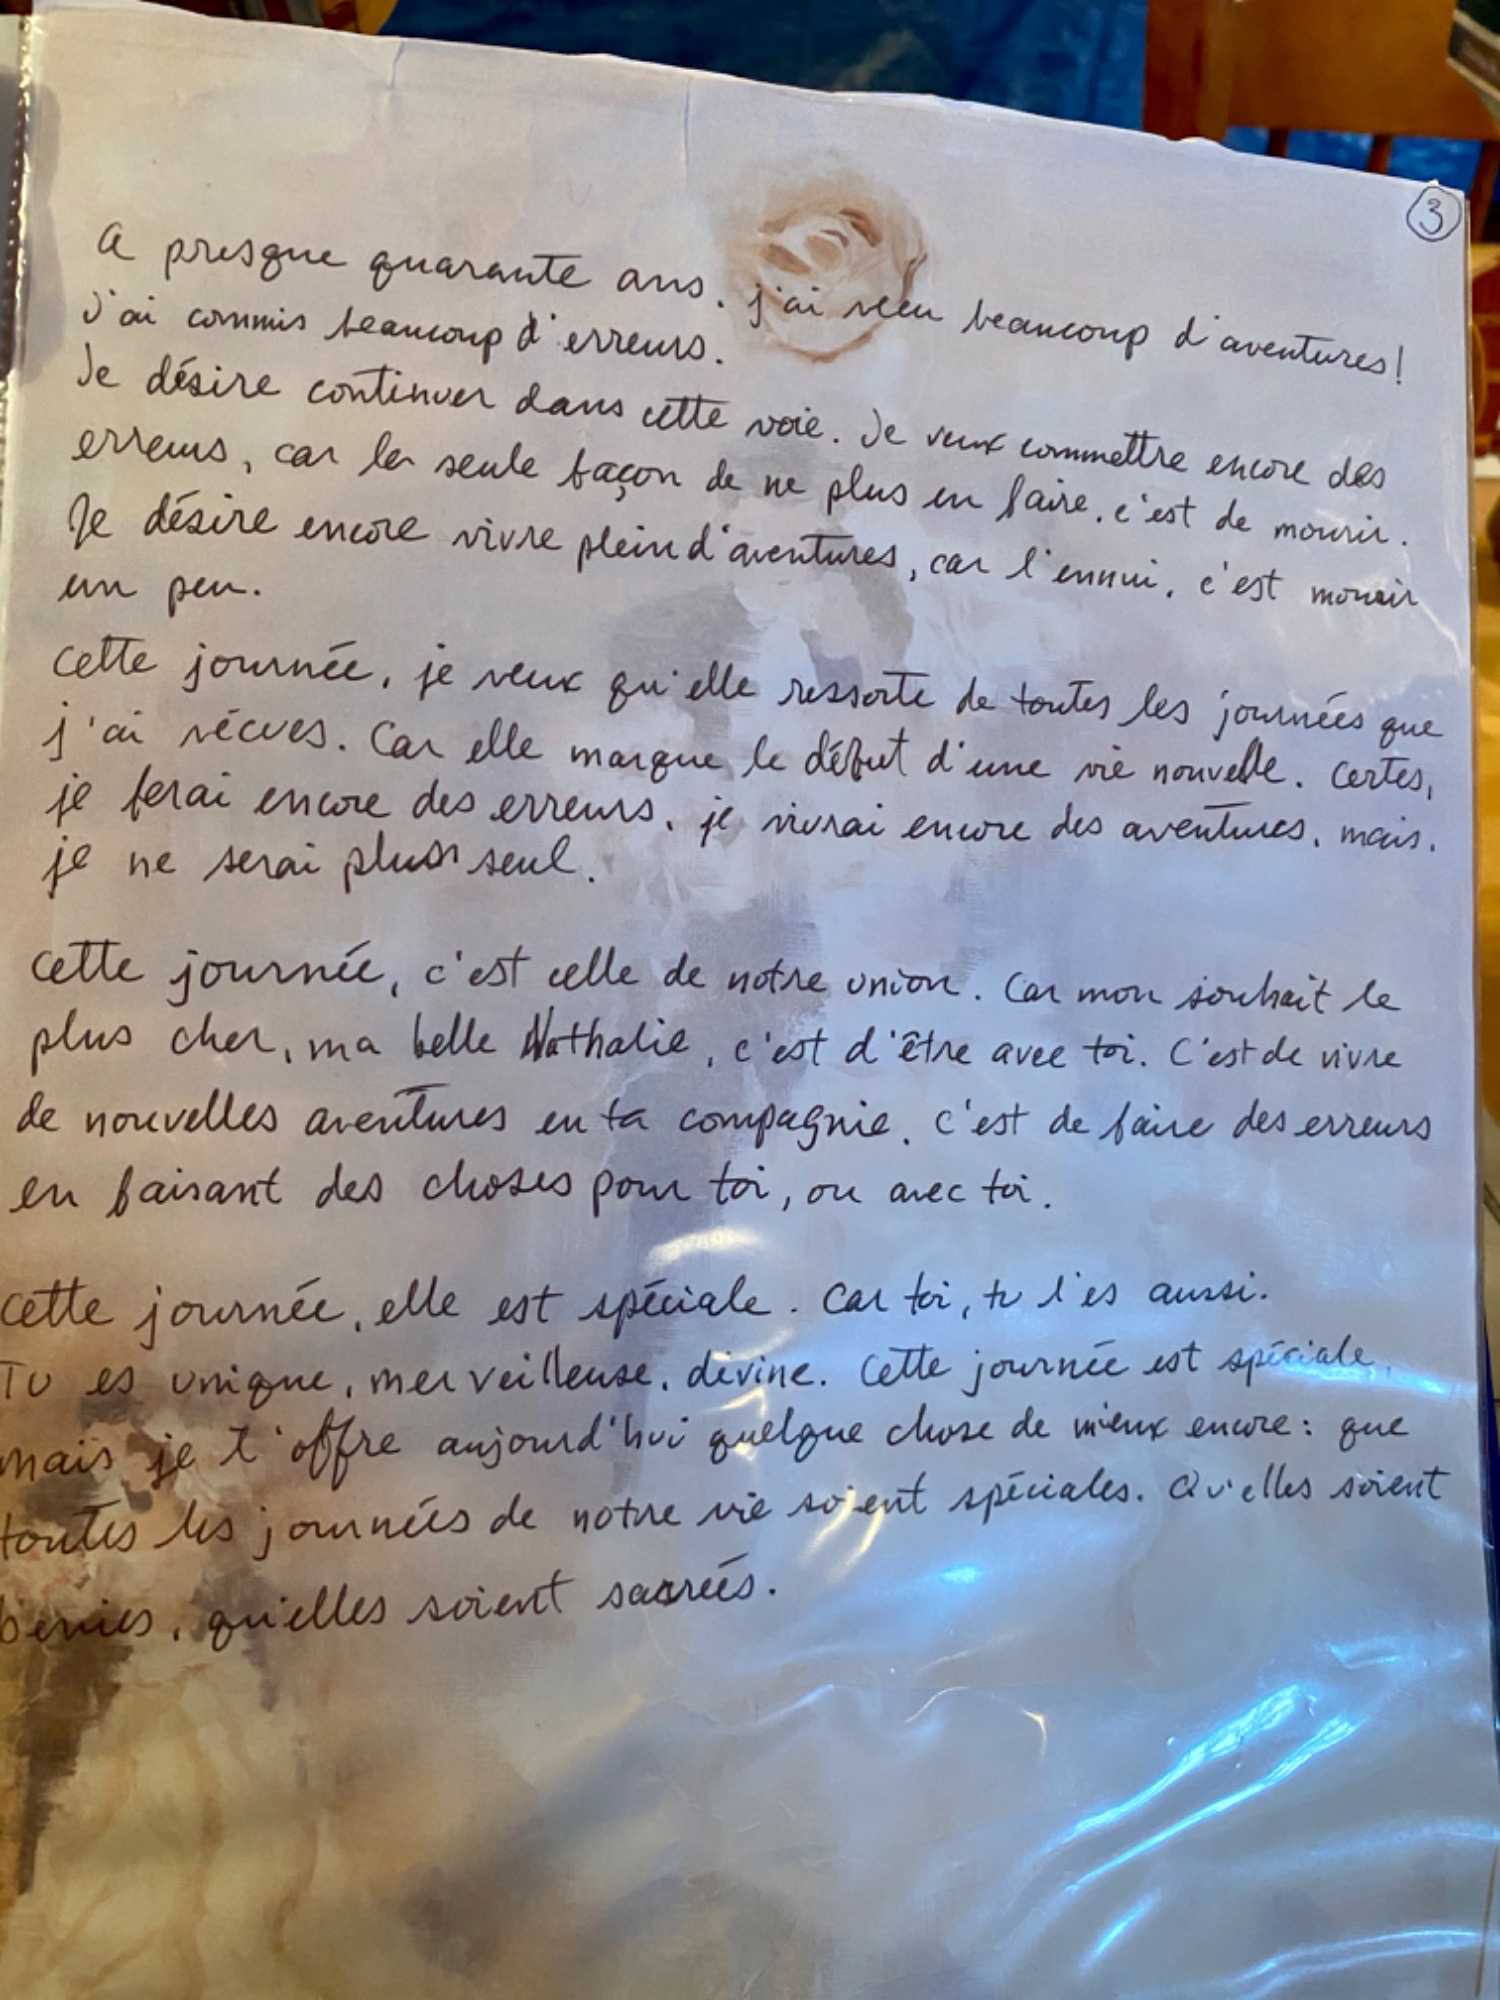 3
A presque quarante ans, j'ai vécu beaucoup d'aventures!
J'ai commis beaucoup d'erreurs.
Je désire continuer dans cette voie. Je veux commettre encore des
erreurs, car la seule façon de ne plus en faire, c'est de mourir.
Je désire encore vivre plein d'aventures, car l'ennui, c'est mourir
un peu.
Cette journée, je veux qu'elle ressorte de toutes les journées que
j'ai vécues. Car elle marque le début d'une vie nouvelle. Certes,
je ferai encore des erreurs, je vivrai encore des aventures, mais,
je ne serai plus seul.
Cette journée, c'est celle de notre union. Car mon souhait le
plus cher, ma belle Nathalie, c'est d'être avec toi. C'est de vivre
de nouvelles aventures en ta compagnie, c'est de faire des erreurs
en faisant des choses pour toi, ou avec toi.
Cette journée, elle est spéciale. Car toi, tu l'es aussi.
Tu es unique, merveilleuse, divine. Cette journée est spéciale,
mais je t'offre aujourd'hui quelque chose de mieux encore: que
toutes les journées de notre vie soient spéciales. Qu'elles soient
bénies, qu'elles soient sacrées.